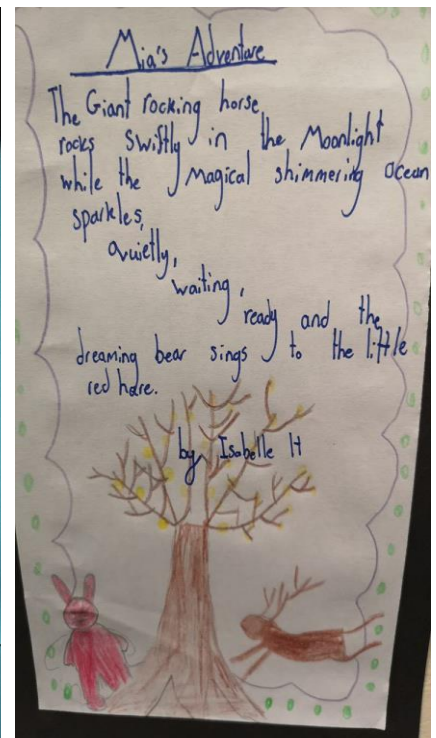 Mia's Adventure
The Giant rocking horse
rocks swiftly in the Moonlight
while the Magical shimmering Ocean
sparkles,
Quietly,
waiting,
ready and the
dreaming bear sings to the little
red hare.
by Isabelle H